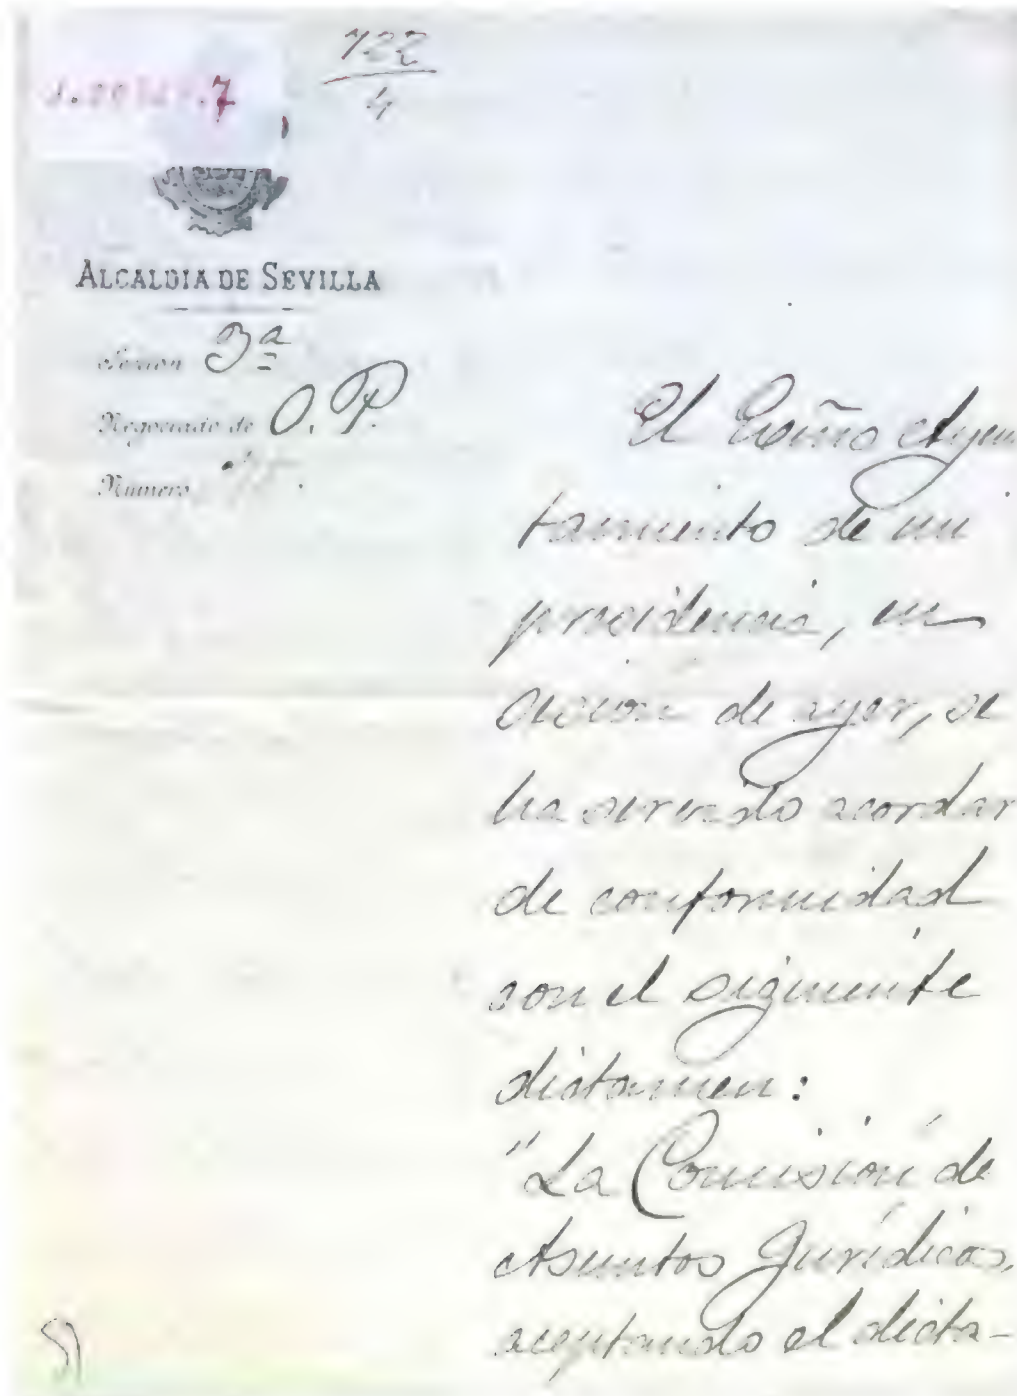 722
4
7
ALCALDIA DE SEVILLA
Sección 3ª
Negociado de O. P.
Número
El Excmo Ayun
tamiento de mi
presidencia, en
sesion de ayer, se
ha servido acordar
de conformidad
con el siguiente
dictamen:
"La Comisión de
Asuntos Jurídicos,
aceptando el dicta-